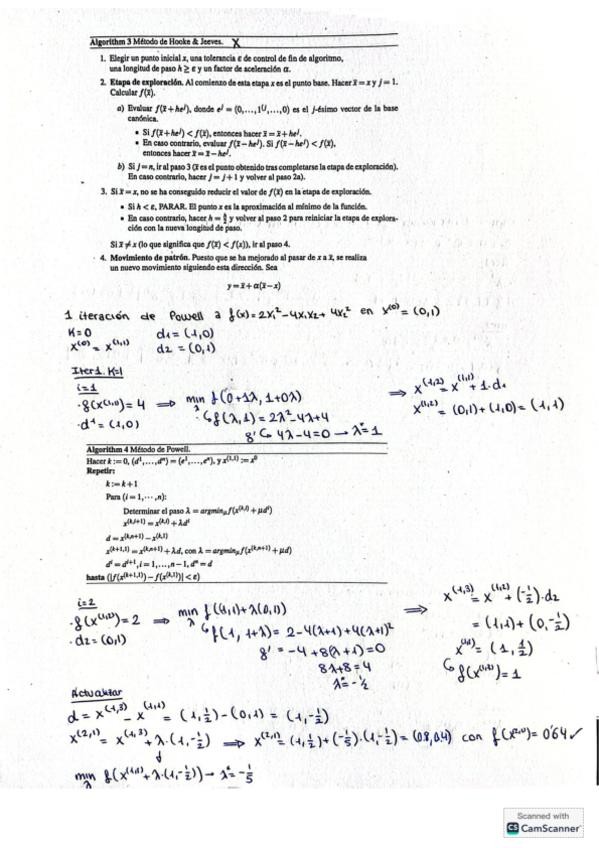 Algorithm 3 Método de Hooke & Jeeves. X
1. Elegir un punto inicial x, una tolerancia ε de control de fin de algoritmo,
una longitud de paso h ≥ ε y un factor de aceleración α.
2. Etapa de exploración. Al comienzo de esta etapa x es el punto base. Hacer x̄ = x y j = 1.
Calcular f(x̄).
a) Evaluar f(x̄ + heʲ), donde eʲ = (0,...,1⁽ʲ,...,0) es el j-ésimo vector de la base
canónica.
• Si f(x̄ + heʲ) < f(x̄), entonces hacer x̄ = x̄ + heʲ.
• En caso contrario, evaluar f(x̄ − heʲ). Si f(x̄ − heʲ) < f(x̄),
entonces hacer x̄ = x̄ − heʲ.
b) Si j = n, ir al paso 3 (x̄ es el punto obtenido tras completarse la etapa de exploración).
En caso contrario, hacer j = j + 1 y volver al paso 2a).
3. Si x̄ = x, no se ha conseguido reducir el valor de f(x̄) en la etapa de exploración.
• Si h < ε, PARAR. El punto x es la aproximación al mínimo de la función.
• En caso contrario, hacer h = h/2 y volver al paso 2 para reiniciar la etapa de explora-
ción con la nueva longitud de paso.
Si x̄ ≠ x (lo que significa que f(x̄) < f(x)), ir al paso 4.
4. Movimiento de patrón. Puesto que se ha mejorado al pasar de x a x̄, se realiza
un nuevo movimiento siguiendo esta dirección. Sea
y = x̄ + α(x̄ − x)
1 iteración de Powell a f(x) = 2x₁² − 4x₁x₂ + 4x₂² en x⁽⁰⁾ = (0,1)
K=0 d1 = (1,0)
x⁽⁰⁾ = x⁽¹,¹⁾ d2 = (0,1)
Iter 1. K=1
i=1
· f(x⁽¹,¹⁾) = 4 ⟹ min λ f(0+1λ, 1+0λ) ⟹ x⁽¹,²⁾ = x⁽¹,¹⁾ + 1·d1
· d¹ = (1,0) ↳ f(λ,1) = 2λ² − 4λ + 4 x⁽¹,²⁾ = (0,1) + (1,0) = (1,1)
f' ↳ 4λ − 4 = 0 → λ* = 1
Algorithm 4 Método de Powell.
Hacer k := 0, (d¹,...,dⁿ) = (e¹,...,eⁿ), y x⁽¹,¹⁾ := x⁰
Repetir:
k := k + 1
Para (i = 1,···,n):
Determinar el paso λ = argminμ f(x⁽ᵏ,ⁱ⁾ + μdⁱ)
x⁽ᵏ,ⁱ⁺¹⁾ = x⁽ᵏ,ⁱ⁾ + λdⁱ
d = x⁽ᵏ,ⁿ⁺¹⁾ − x⁽ᵏ,¹⁾
x⁽ᵏ⁺¹,¹⁾ = x⁽ᵏ,ⁿ⁺¹⁾ + λd, con λ = argminμ f(x⁽ᵏ,ⁿ⁺¹⁾ + μd)
dⁱ = dⁱ⁺¹, i = 1,...,n − 1, dⁿ = d
hasta (|f(x⁽ᵏ⁺¹,¹⁾) − f(x⁽ᵏ,¹⁾)| < ε)
i=2
· f(x⁽¹,²⁾) = 2 ⟹ min λ f((1,1) + λ(0,1)) ⟹ x⁽¹,³⁾ = x⁽¹,²⁾ + (−1/2)·d2
· d2 = (0,1) ↳ f(1, 1+λ) = 2 − 4(λ+1) + 4(λ+1)² = (1,1) + (0, −1/2)
f' = −4 + 8(λ+1) = 0 = (1, 1/2)
8λ + 8 = 4
λ* = −1/2 = 1
Actualizar
d = x⁽¹,³⁾ − x⁽¹,¹⁾ = (1, 1/2) − (0,1) = (1, −1/2)
x⁽²,¹⁾ = x⁽¹,³⁾ + λ·(1, −1/2) ⟹ x⁽²,¹⁾ = (1, 1/2) + (−1/5)·(1, −1/2) = (0.8, 0.4) con = 0'64 ✓
↓
min λ + λ·(1, −1/2)) → λ* = −1/5
Scanned with
CS CamScanner